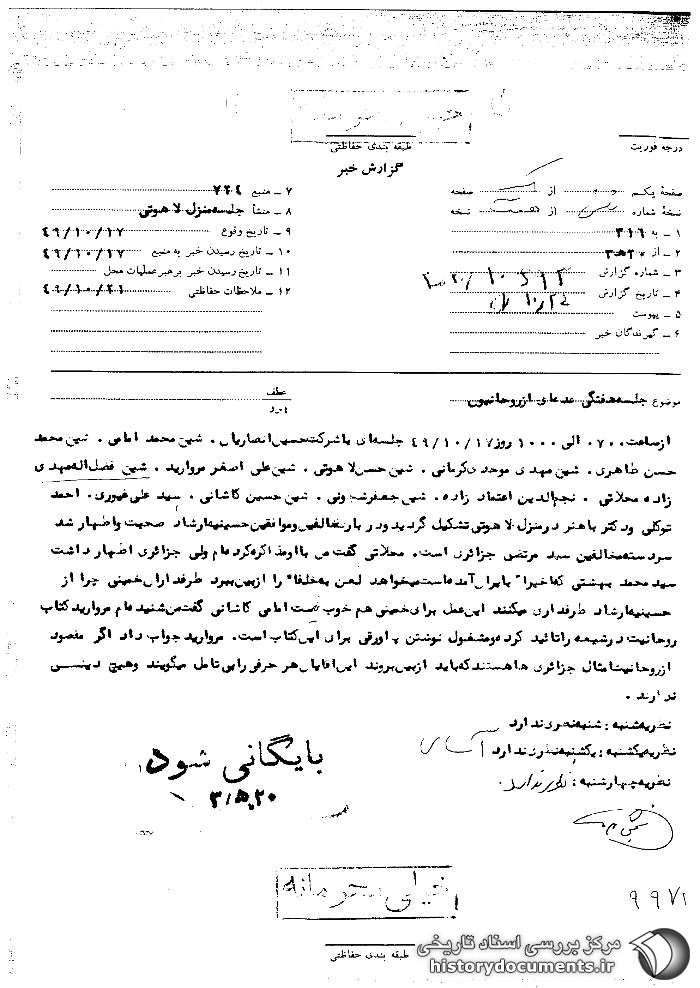 درجه فوریت
طبقه بندی حفاظتی
گزارش خبر
صفحه یکم از صفحه
نسخه شماره از نسخه
۱ ـ به ۳۱۶
۲ ـ از
۳ ـ شماره گزارش
۴ ـ تاریخ گزارش
۵ ـ پیوست
۶ ـ گیرندگان خبر
۷ ـ منبع
۸ ـ منشأ جلسه منزل لاهوتی
۹ ـ تاریخ وقوع ۴۹/۱۰/۱۷
۱۰ ـ تاریخ رسیدن خبر به منبع ۴۹/۱۰/۱۷
۱۱ ـ تاریخ رسیدن خبر برهبر عملیات محل
۱۲ ـ ملاحظات حفاظتی ۴۹/۱۰/۲۱
موضوع جلسه هفتگی عده‌ای از روحانیون
عطف
پیرو
از ساعت ۰۷۰۰ الی ۱۰۰۰ روز ۴۹/۱۰/۱۷ جلسه‌ای با شرکت حسین انصاریان . شیخ محمد امامی . شیخ محمد
حسن طاهری . شیخ مهدی موحدی کرمانی . شیخ حسن لاهوتی . شیخ علی اصغر مروارید . شیخ فضل اله مهدی
زاده محلاتی . نجم الدین اعتماد زاده . شیخ جعفر شجونی . شیخ حسین کاشانی . سید علی غیوری . احمد
توکلی و دکتر باهنر در منزل لاهوتی تشکیل گردید و درباره مخالفین و موافقین حسینیه ارشاد صحبت و اظهار شد
سردسته مخالفین سید مرتضی جزائری است . محلاتی گفت من با او مذاکره کرده‌ام ولی جزائری اظهار داشت
سید محمد بهشتی که اخیرا" بایران آمده است میخواهد لعن به خلفا" را از بین ببرد طرفداران خمینی چرا از
حسینیه ارشاد طرفداری میکنند این عمل برای خمینی هم خوب نیست امامی کاشانی گفت من شنیده‌ام مروارید کتاب
روحانیت در شیعه را تائید کرده و مشغول نوشتن پاورقی برای این کتاب است . مروارید جواب داد اگر مقصود
از روحانیت امثال جزائری ها هستند که باید از بین بروند این آقایان هر حرفی را بی تامل میگویند و هیچ دینی
ندارند .
نظریه شنبه : شنبه نظری ندارد
نظریه یکشنبه : یکشنبه نظری ندارد
نظریه چهارشنبه : نظری ندارد .
بایگانی شود
۳/۵۲۰
خیلی محرمانه
۹۹۷۱
طبقه بندی حفاظتی
مرکز بررسی اسناد تاریخی
historydocuments.ir